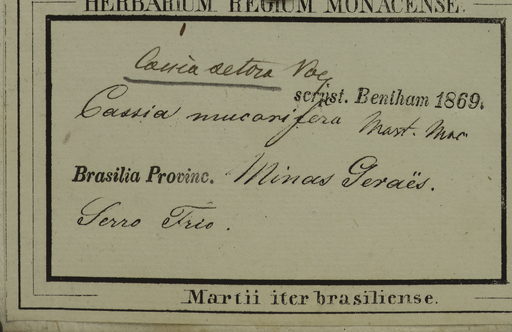 HERBARIUM REGIUM MONACENSE.
Cassia setosa Vog
script. Bentham 1869.
Cassia mucorifera Mart. Mac
Brasilia Provinc. Minas Geraës.
Serro Frio.
Martii iter brasiliense.